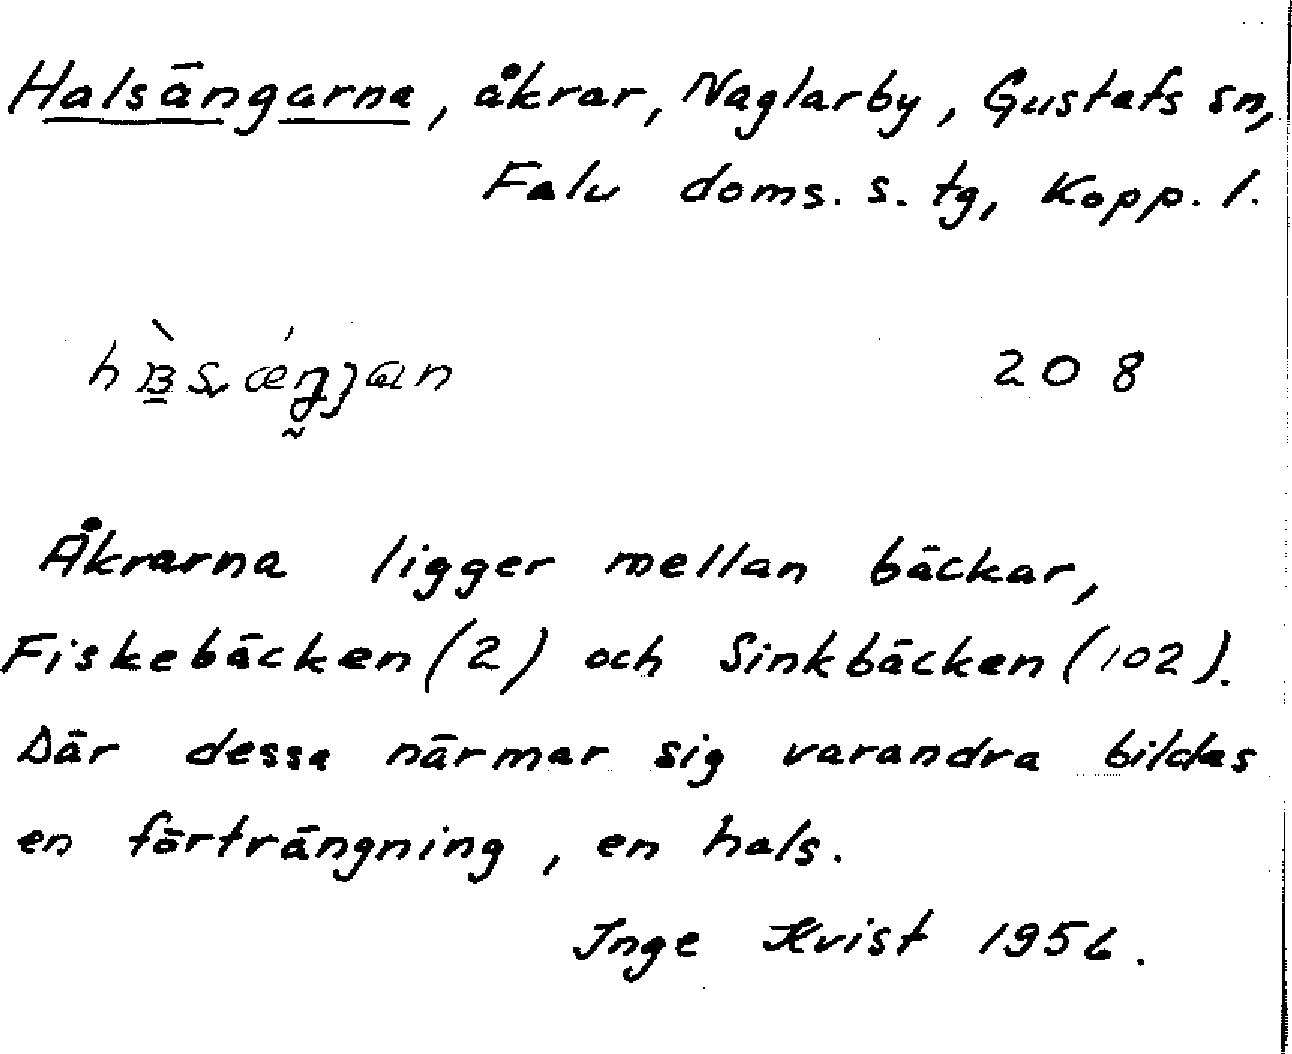 Halsängarna, åkrar, Naglarby, Gustafs sn,
Falu doms. s. tg, Kopp. l.
208
Åkrarna ligger mellan bäckar,
Fiskebäcken (2) och Sinkbäcken (102).
Där dessa närmar sig varandra bildas
en förträngning, en hals.
Inge Kvist 1956.